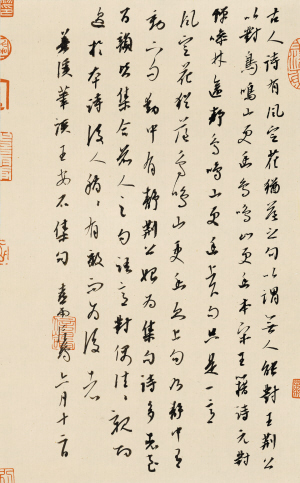 古人詩有風定花猶落之句以謂無人能對王荊公
以對鳥鳴山更幽鳥鳴山更幽本宋王籍詩元對
蟬噪林逾静鳥鳴山更幽句只是一意
風定花猶落鳥鳴山更幽上句乃静中有
動下句動中有静荊公始為集句詩多者至
百韻皆集合前人之句語意對偶往往親切
過於本詩後人稍稍有效而為
夢溪筆談王安石集句 六月十